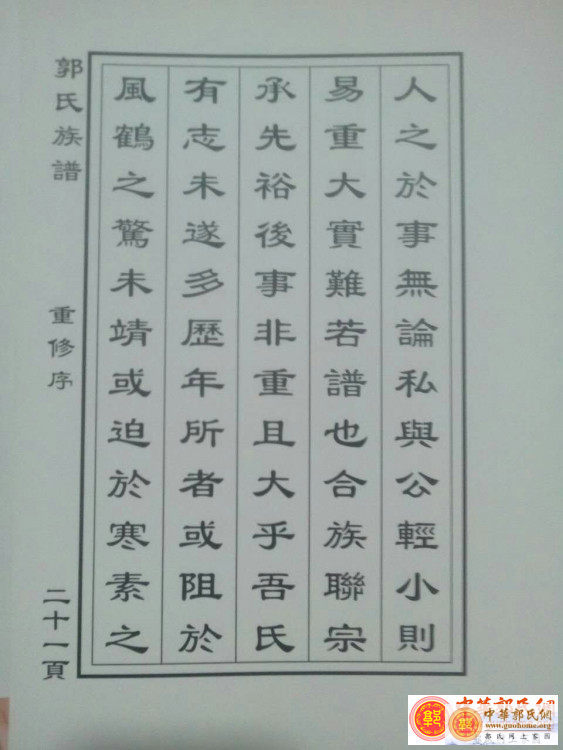 人之於事無論私與公輕小則
易重大實難若譜也合族聯宗
承先裕後事非重且大乎吾氏
有志未遂多歷年所者或阻於
風鶴之驚未靖或迫於寒素之
郭氏族譜
重修序
二十一頁
中華郭氏網
www.guohome.org
郭氏网上家园